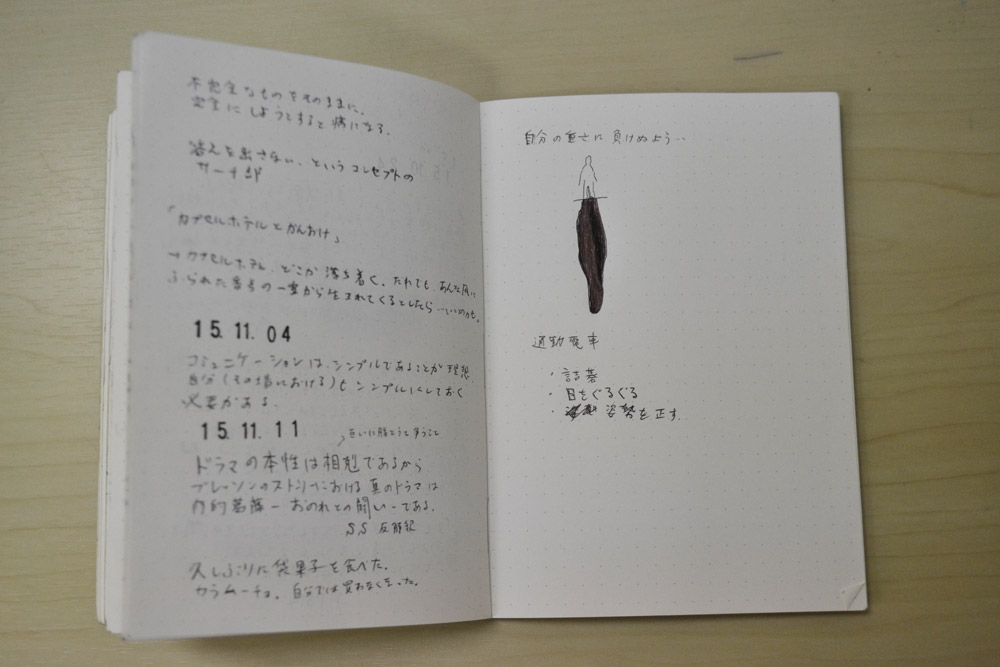 不完全なものをそのままに、
完全にしようとすると病になる。
答えを出さない、というコンセプトの
サーチ部
「カプセルホテルとかんおけ」
→カプセルホテル、どこか落ち着く。だれでも、あんな風に
ふられた番号の一室から生まれてくるとしたら…いいのかも。
15.11.04
コミュニケーションは、シンプルであることが理想
自分(その場における)もシンプルにしておく
必要がある。
15.11.11
互いに勝とうと争うこと
ドラマの本性は相剋であるから
ブレッソンのストーリーにおける真のドラマは
内的葛藤-おのれとの闘い-である。
SS 反解釈
久しぶりに袋菓子を食べた。
カラムーチョ。自分では買わなくなった。
自分の重さに負けぬよう..
通勤電車
・詰碁
・目をぐるぐる
・姿勢を正す.